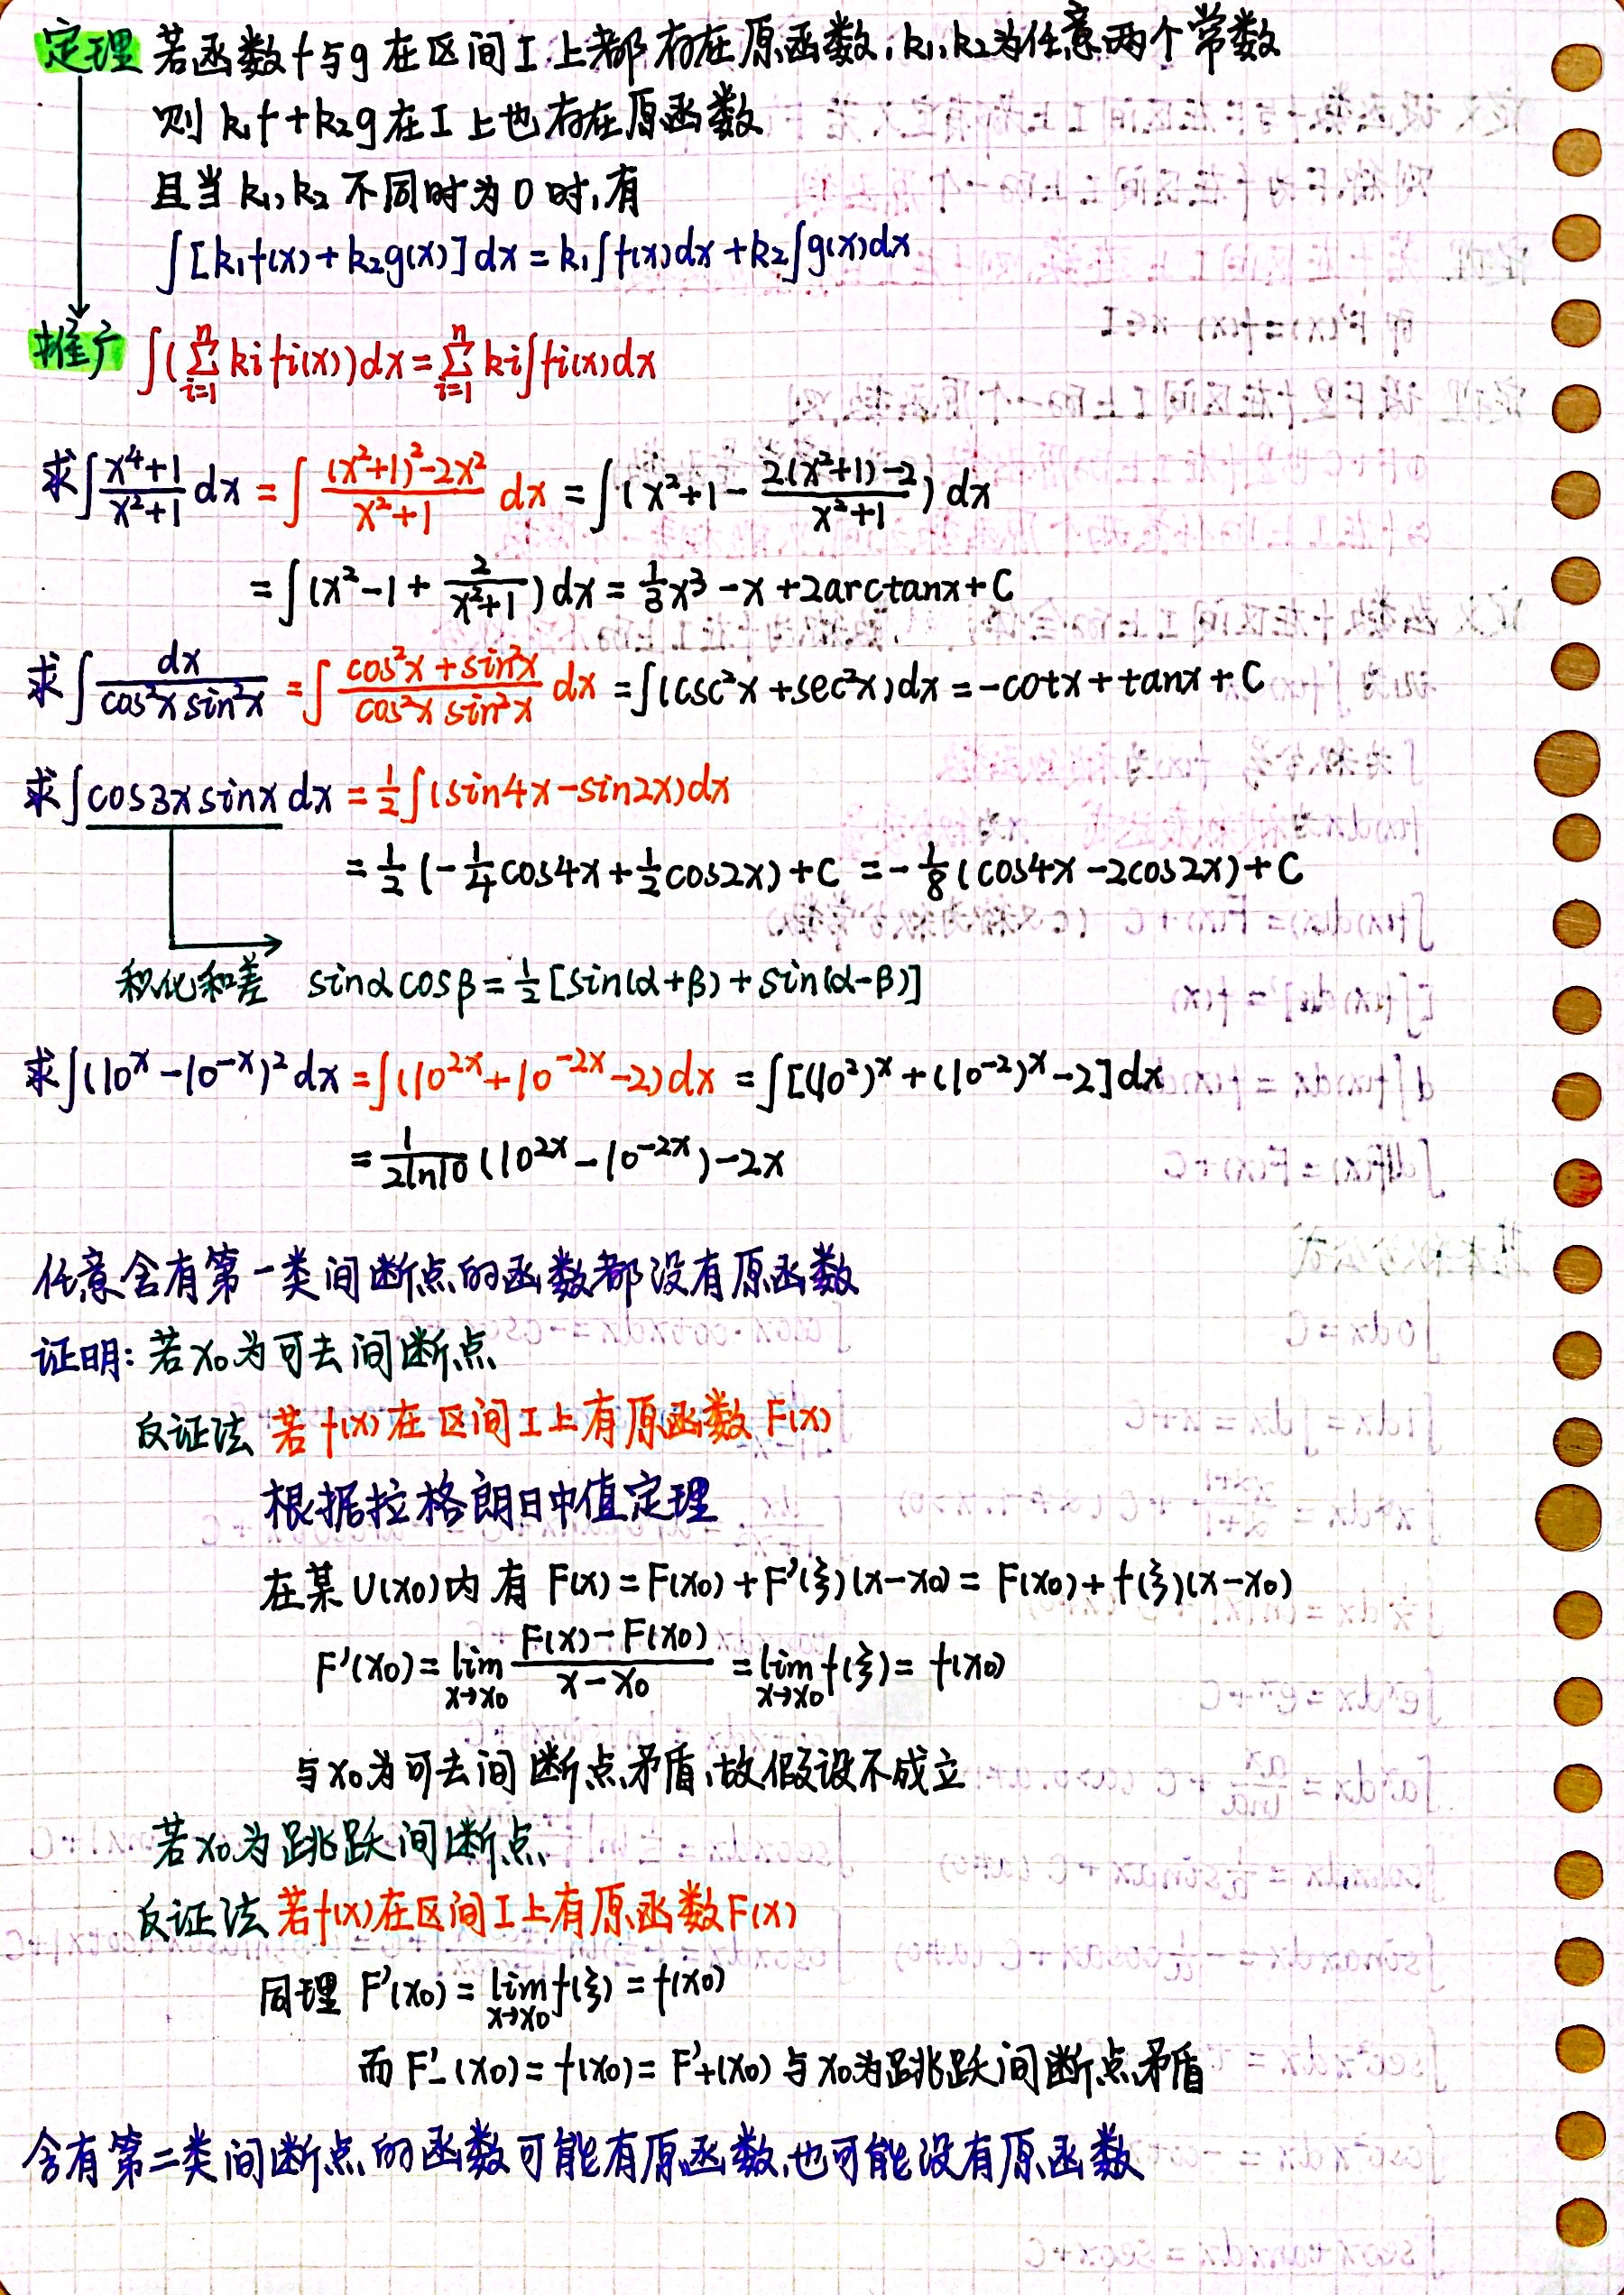 定理 若函数f与g在区间I上都存在原函数,k₁,k₂为任意两个常数
则k₁f+k₂g在I上也存在原函数
且当k₁,k₂不同时为0时,有
∫[k₁f(x)+k₂g(x)]dx=k₁∫f(x)dx+k₂∫g(x)dx
推广 ∫(∑ᵢ₌₁ⁿ kᵢfᵢ(x))dx=∑ᵢ₌₁ⁿ kᵢ∫fᵢ(x)dx
求∫(x⁴+1)/(x²+1) dx = ∫((x²+1)²-2x²)/(x²+1) dx = ∫(x²+1-(2(x²+1)-2)/(x²+1)) dx
=∫(x²-1+2/(x²+1))dx=1/3x³-x+2arctanx+C
求∫dx/(cos²x sin²x) =∫(cos²x+sin²x)/(cos²x sin²x) dx =∫(csc²x+sec²x)dx=-cotx+tanx+C
求∫cos3x sinx dx =1/2∫(sin4x-sin2x)dx
=1/2(-1/4cos4x+1/2cos2x)+C =-1/8(cos4x-2cos2x)+C
积化和差 sinαcosβ=1/2[sin(α+β)+sin(α-β)]
求∫(10ˣ-10⁻ˣ)²dx=∫(10²ˣ+10⁻²ˣ-2)dx =∫[(10²)ˣ+(10⁻²)ˣ-2]dx
=1/(2ln10)(10²ˣ-10⁻²ˣ)-2x
任意含有第一类间断点的函数都没有原函数
证明:若x₀为可去间断点
反证法 若f(x)在区间I上有原函数F(x)
根据拉格朗日中值定理
在某U(x₀)内有 F(x)=F(x₀)+F'(ξ)(x-x₀)=F(x₀)+f(ξ)(x-x₀)
F'(x₀)=lim x→x₀ (F(x)-F(x₀))/(x-x₀) =lim x→x₀ f(ξ)=f(x₀)
与x₀为可去间断点矛盾,故假设不成立
若x₀为跳跃间断点
反证法 若f(x)在区间I上有原函数F(x)
同理 F'(x₀)=lim x→x₀ f(ξ)=f(x₀)
而F'₋(x₀)=f(x₀)=F'₊(x₀)与x₀为跳跃间断点矛盾
含有第二类间断点的函数可能有原函数,也可能没有原函数